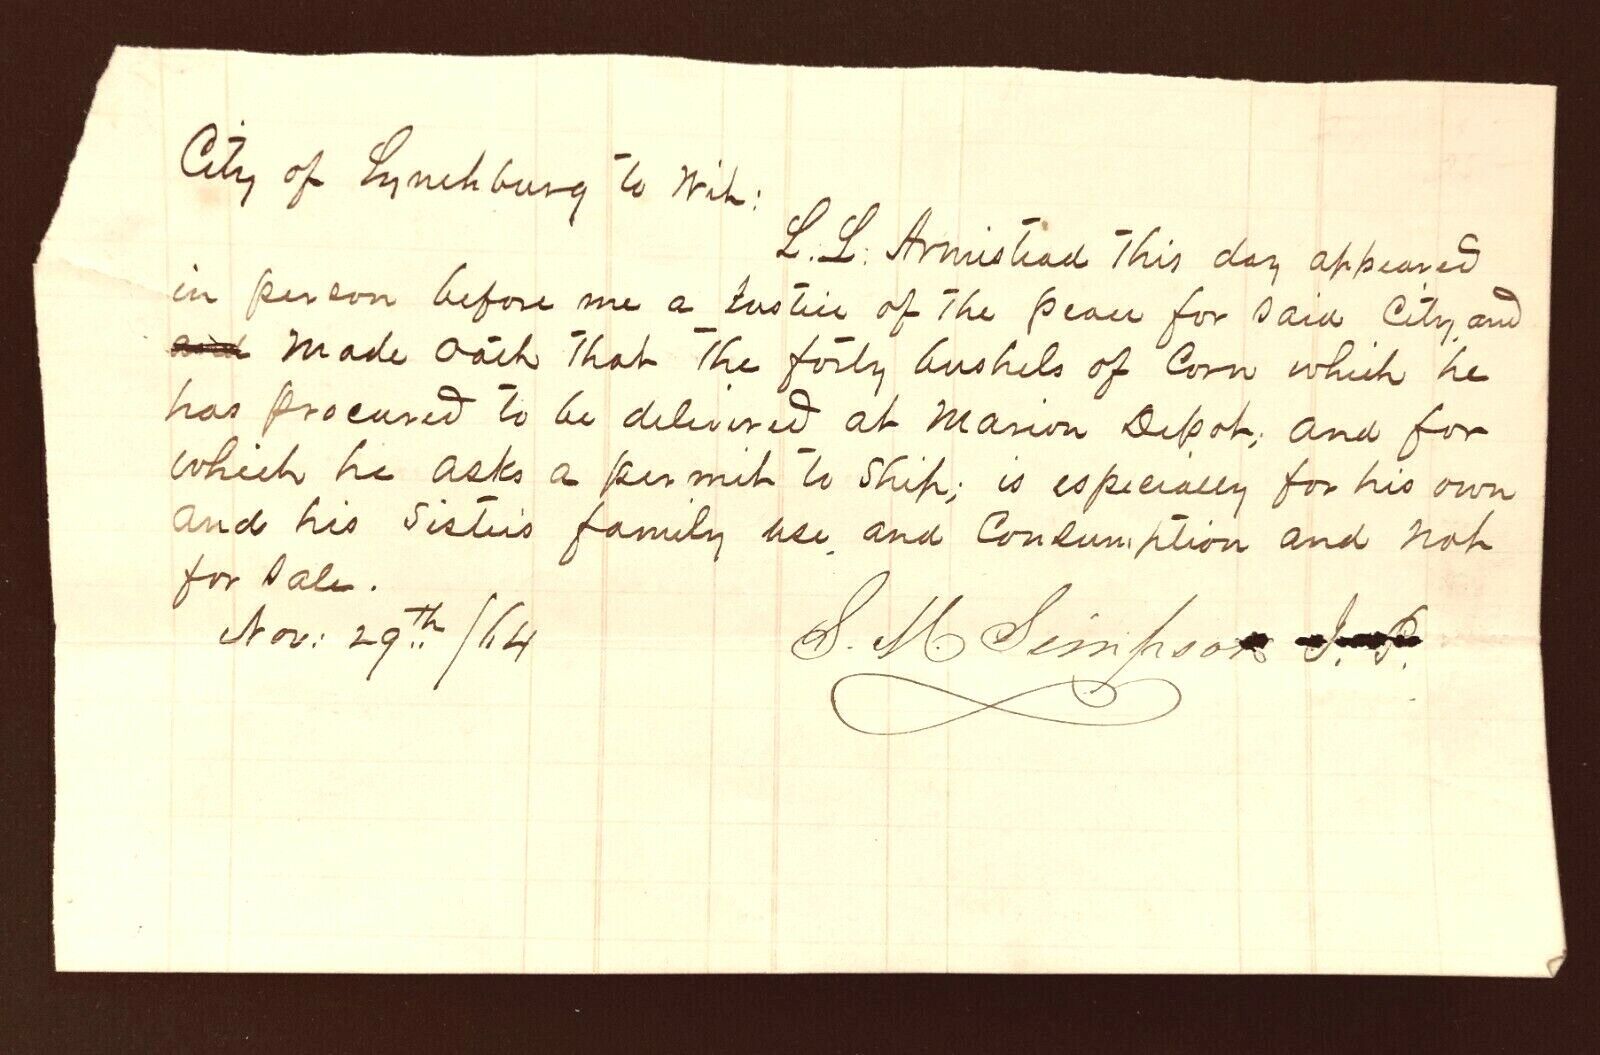 City of Lynchburg to Wit:
L. L. Armistead this day appeared
in person before me a Justice of the peace for said City, and
and Made Oath that the forty bushels of Corn which he
has procured to be delivered at Marion Depot; and for
which he asks a permit to Ship; is especially for his own
and his Sisters family use and Consumption and not
for sale.
Nov: 29th /64
S. M. Simpson J. P.